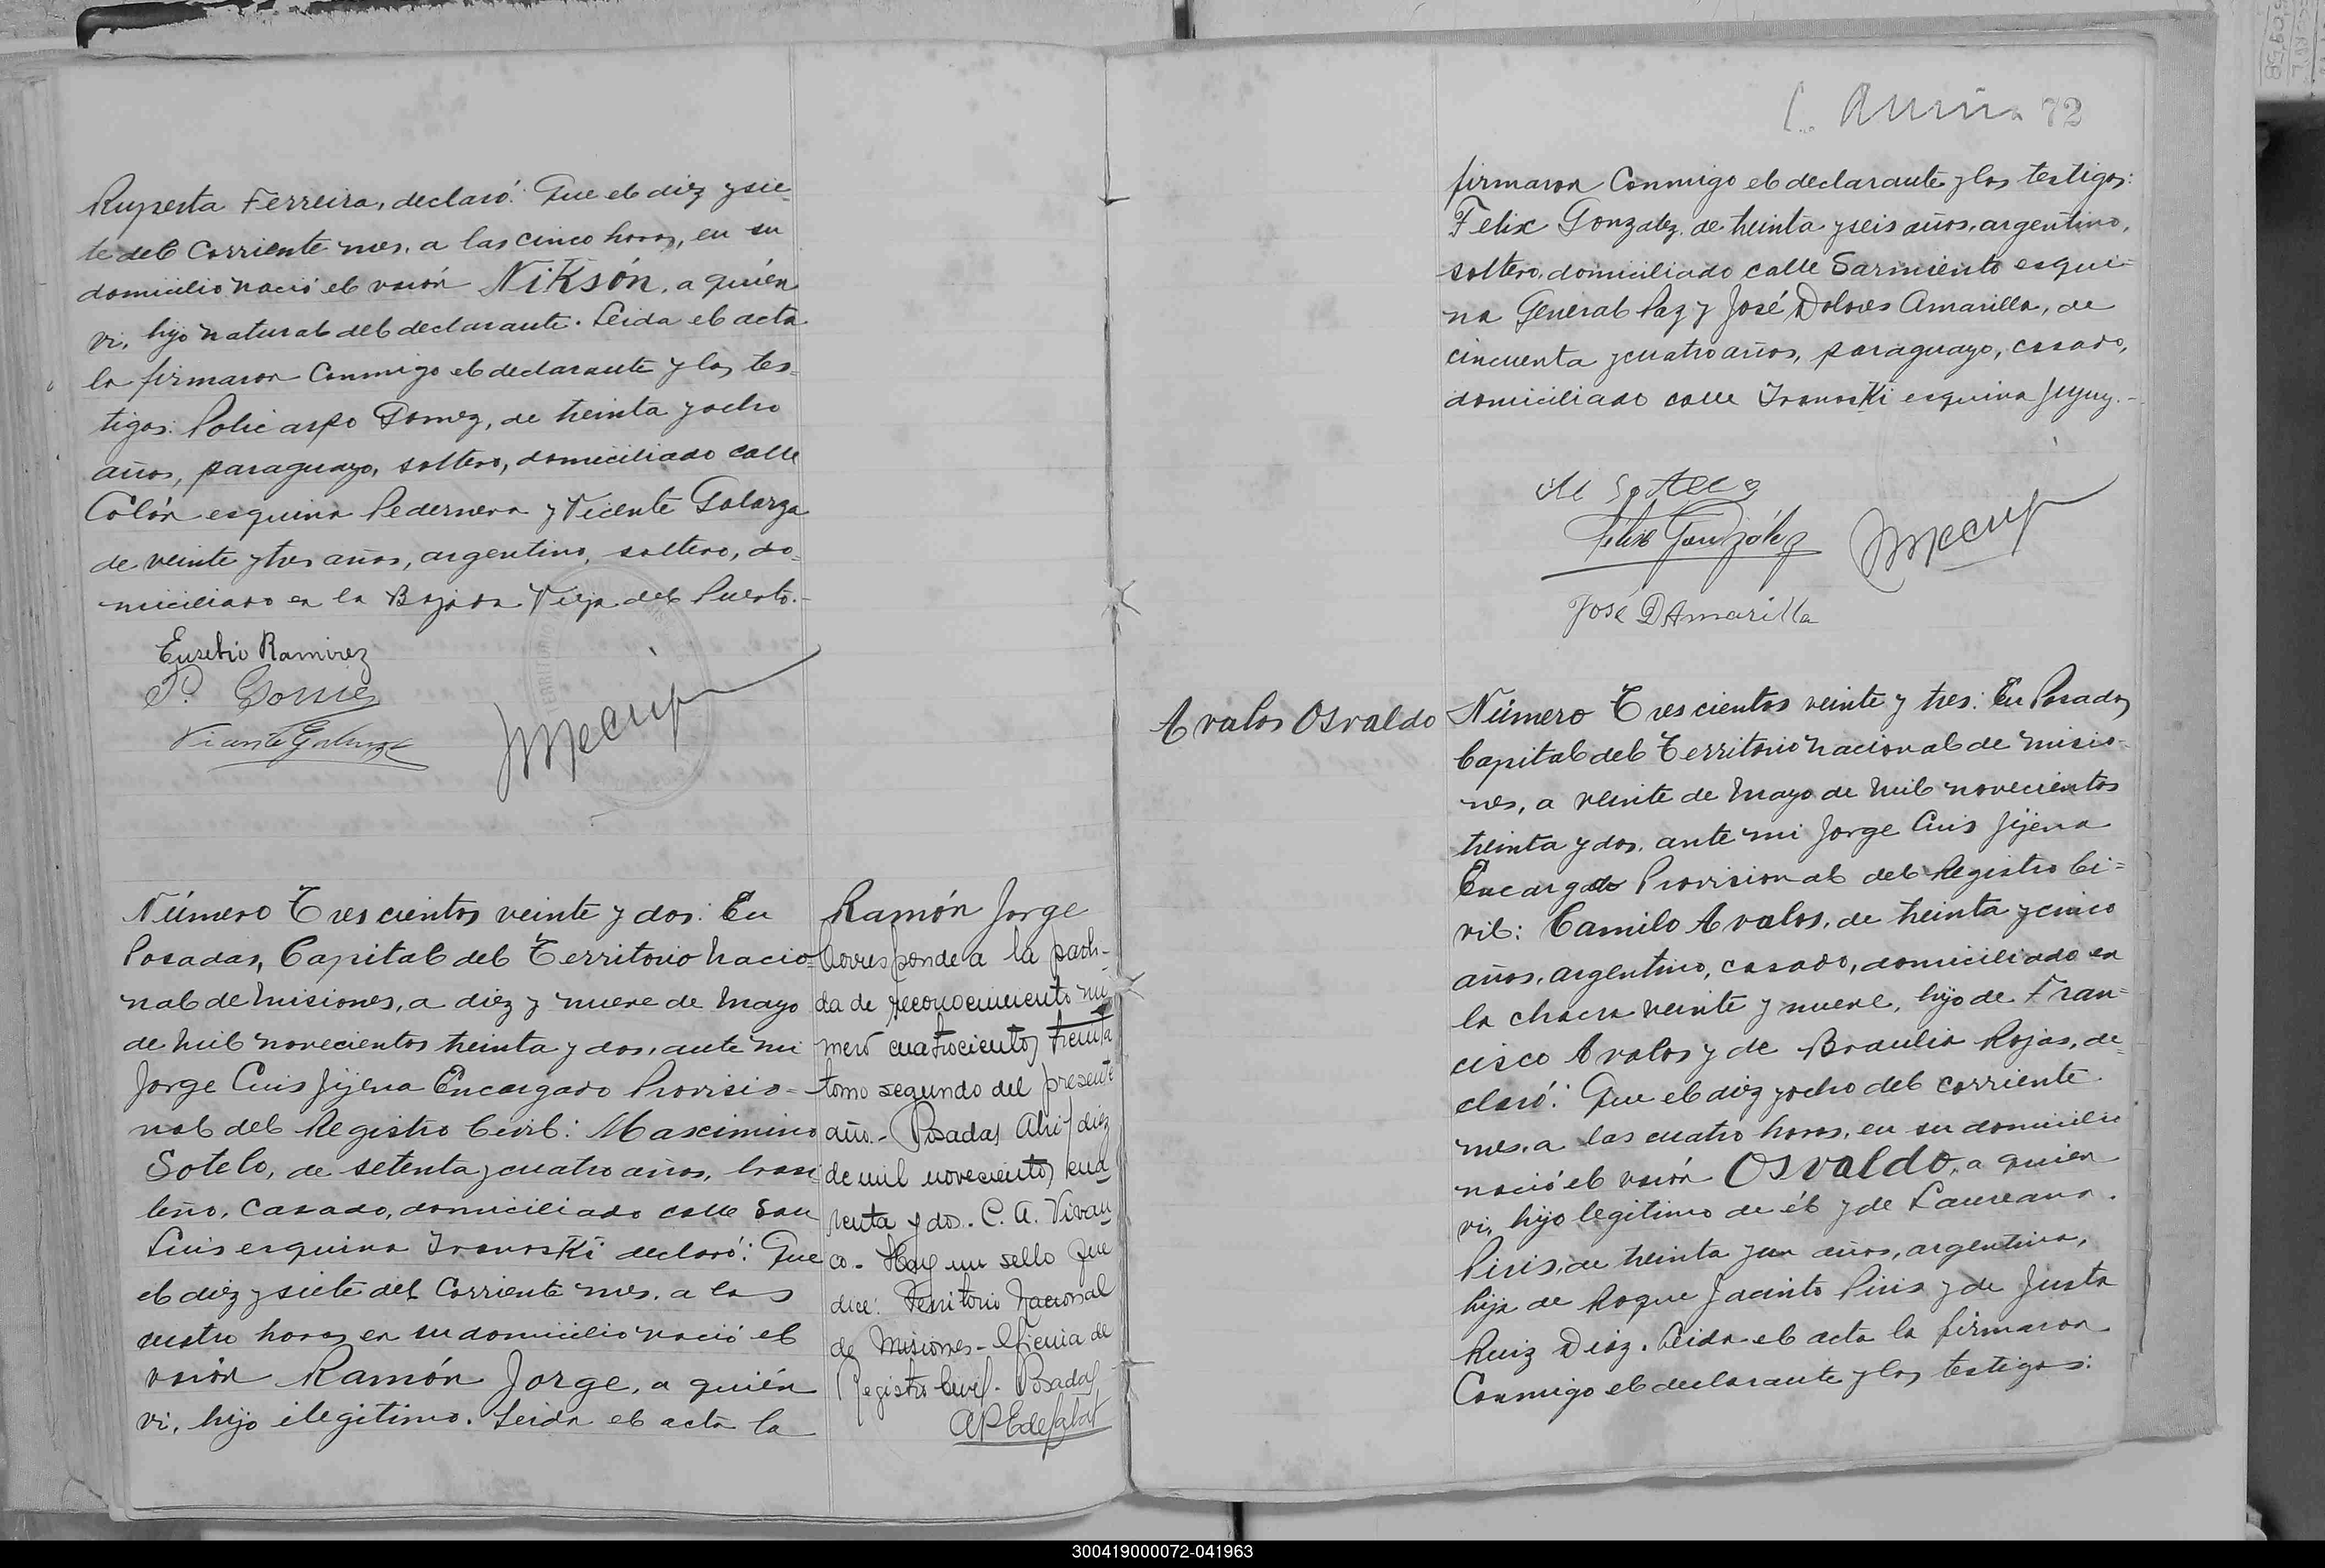 Ruperta Ferreira, declaró: Que el diez y sie-
te del Corriente mes, a las cinco horas, en su
domicilio nació el varón NiKsón, a quién
vi, hijo natural del declarante. Leida el acta
la firmaron Conmigo el declarante y los tes-
tigos: Policarpo Gomez, de treinta y ocho
años, paraguayo, soltero, domiciliado calle
Colón esquina Pedernera y Vicente Galarza
de veinte y tres años, argentino, soltero, do-
miciliado en la Bajada Vieja del Puerto.-
Eusebio Ramirez
P. Gomez
Vicente Galarza
Número Trescientos veinte y dos: En
Posadas, Capital del Territorio Nacio-
nal de Misiones, a diez y nueve de Mayo
de Mil novecientos treinta y dos, ante mi
Jorge Luis Jijena Encargado Provisio-
nal del Registro Civil: Mascimino
Sotelo, de setenta y cuatro años, brasi-
leño, Casado, domiciliado calle San
Luis esquina IvanosKi declaró: Que
el diez y siete del Corriente mes, a las
cuatro horas en su domicilio nació el
varón Ramón Jorge, a quién
vi, hijo ilegitimo. Leida el acta la
Ramón Jorge
Corresponde a la parti-
da de reconocimiento nú-
mero cuatrocientos treinta
tomo segundo del presente
año.- Posadas Abril diez
de mil novecientos cua
renta y dos.- C. A. Vivan
co.- Hay un sello que
dice: Territorio Nacional
de Misiones- Oficina de
Registro Civil- Posadas
72
firmaron Conmigo el declarante y los testigos:
Felix Gonzalez, de treinta y seis años, argentino,
soltero, domiciliado calle Sarmiento esqui-
na General Paz y José Dolores Amarilla, de
cincuenta y cuatro años, paraguayo, casado,
domiciliado calle IvanosKi esquina Jujuy.-
M Sotelo
Felix González
José D Amarilla
Avalos Osvaldo
Número Trescientos veinte y tres: En Posadas
Capital del Territorio Nacional de Misio-
nes, a veinte de Mayo de Mil novecientos
treinta y dos, ante mi Jorge Luis Jijena
Encargado Provisional del Registro Ci-
vil: Camilo Avalos, de treinta y cinco
años, argentino, casado, domiciliado en
la chacra veinte y nueve, hijo de Fran-
cisco Avalos y de Braulia Rojas, de-
claró: Que el diez y ocho del corriente
mes, a las cuatro horas, en su domicilio
nació el varón Osvaldo, a quien
vi, hijo legitimo de él y de Laureana
Piris, de treinta y un años, argentina,
hija de Roque Jacinto Piris y de Justa
Ruiz Diaz. Leida el acta la firmaron
Conmigo el declarante y los testigos:
300419000072-041963